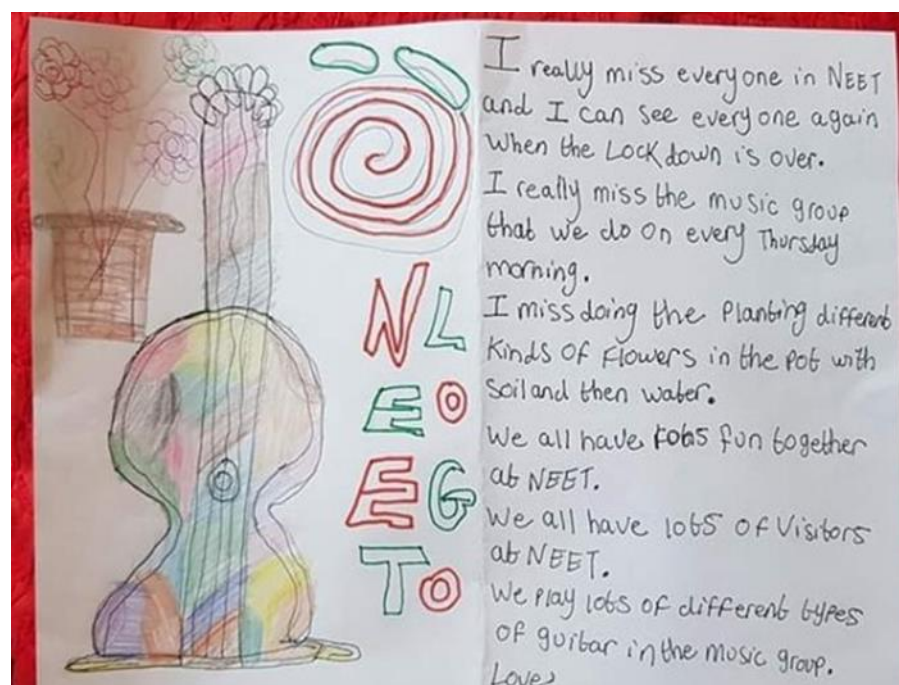 N L
E O
E G
T O
I really miss everyone in NEET
and I can see everyone again
when the Lockdown is over.
I really miss the music group
that we do on every Thursday
morning.
I miss doing the Planting different
kinds of Flowers in the pot with
soil and then water.
We all have lots fun together
at NEET.
We all have lots of Visitors
at NEET.
We Play lots of different types
of guitar in the music group.
Love,